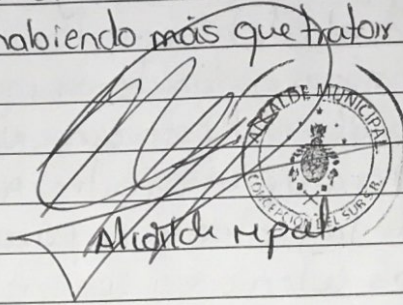 habiendo más que tratar
ALCALDE MUNICIPAL
CONCEPCIÓN DEL SUR S.B.
Alcalde mpal.